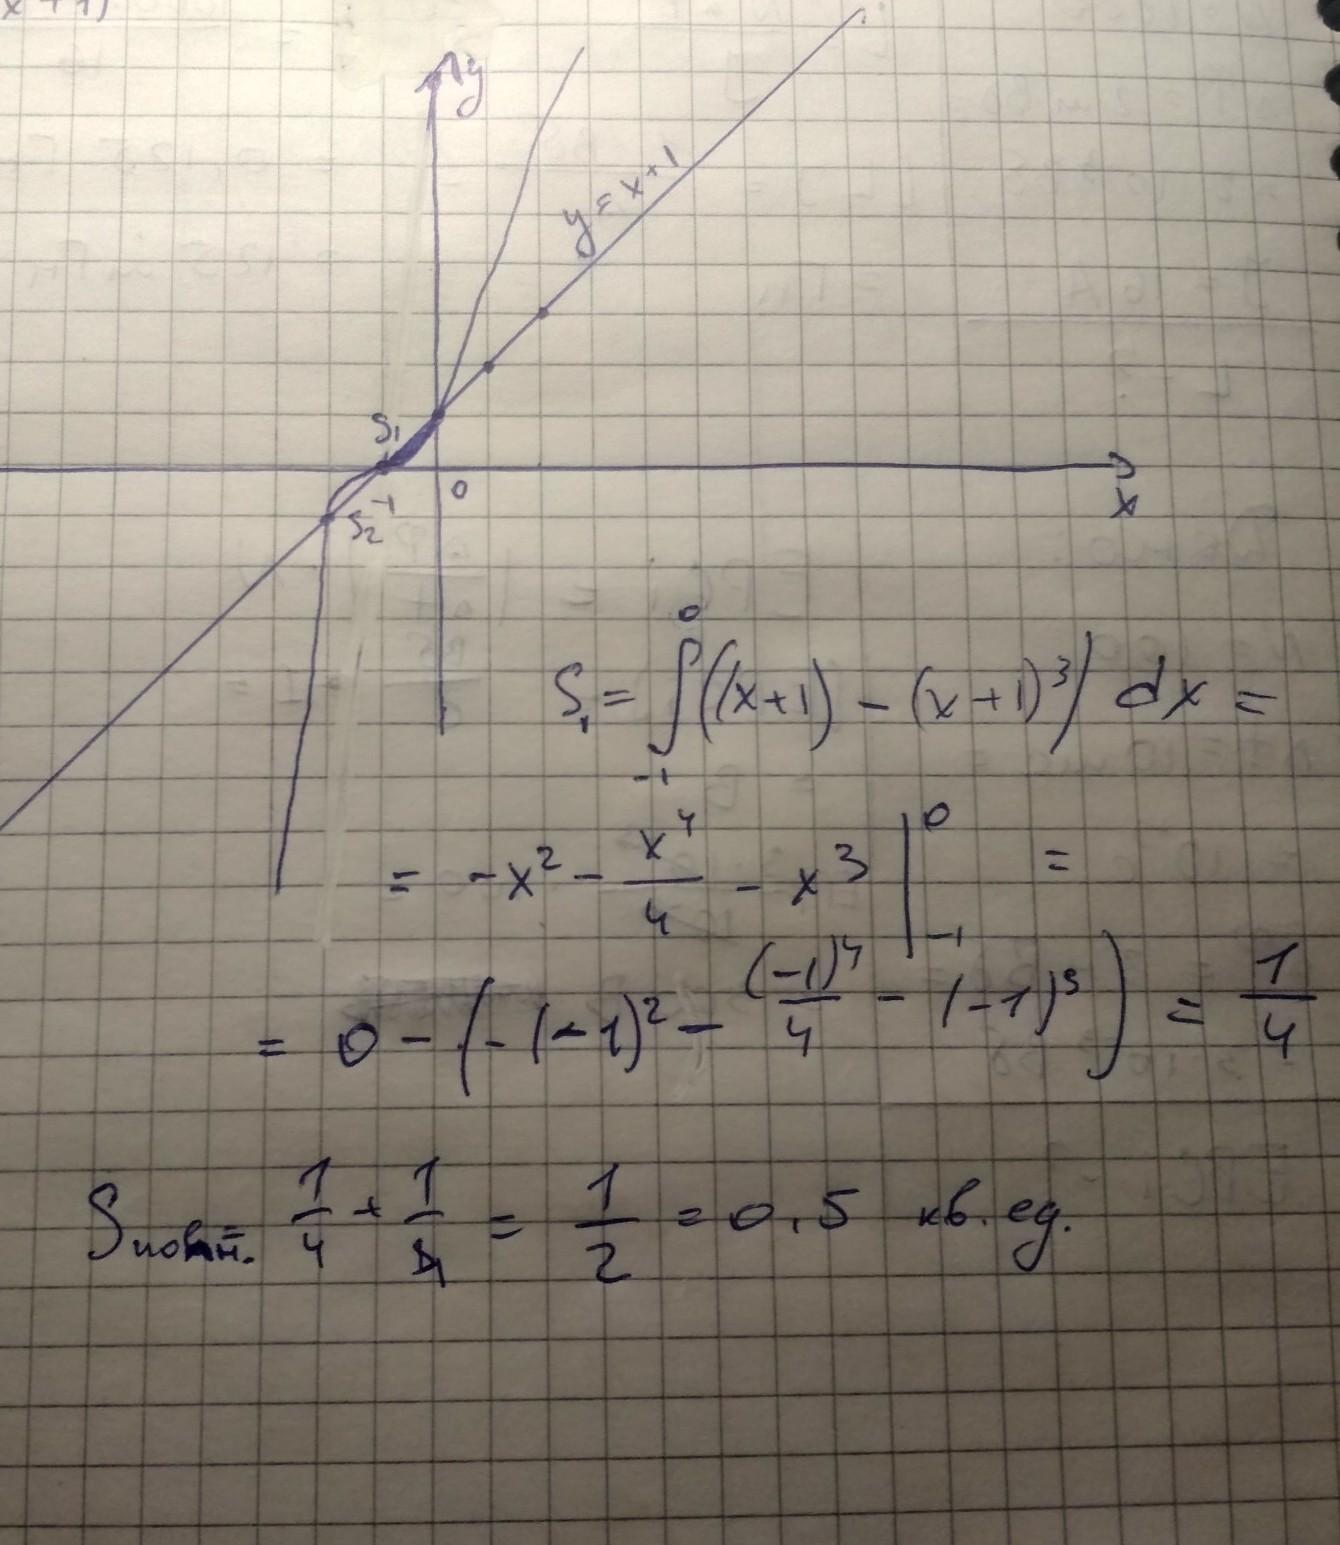 x+1)
y
y = x+1
S₁
-1
0
S₂
x
S₁ = ∫₋₁⁰ ((x+1) - (x+1)³) dx =
= -x² - x⁴/4 - x³ |₋₁⁰ =
= 0 - (-(-1)² - (-1)⁴/4 - (-1)³) = 1/4
Sповн. = 1/4 + 1/4 = 1/2 = 0,5 кв. ед.